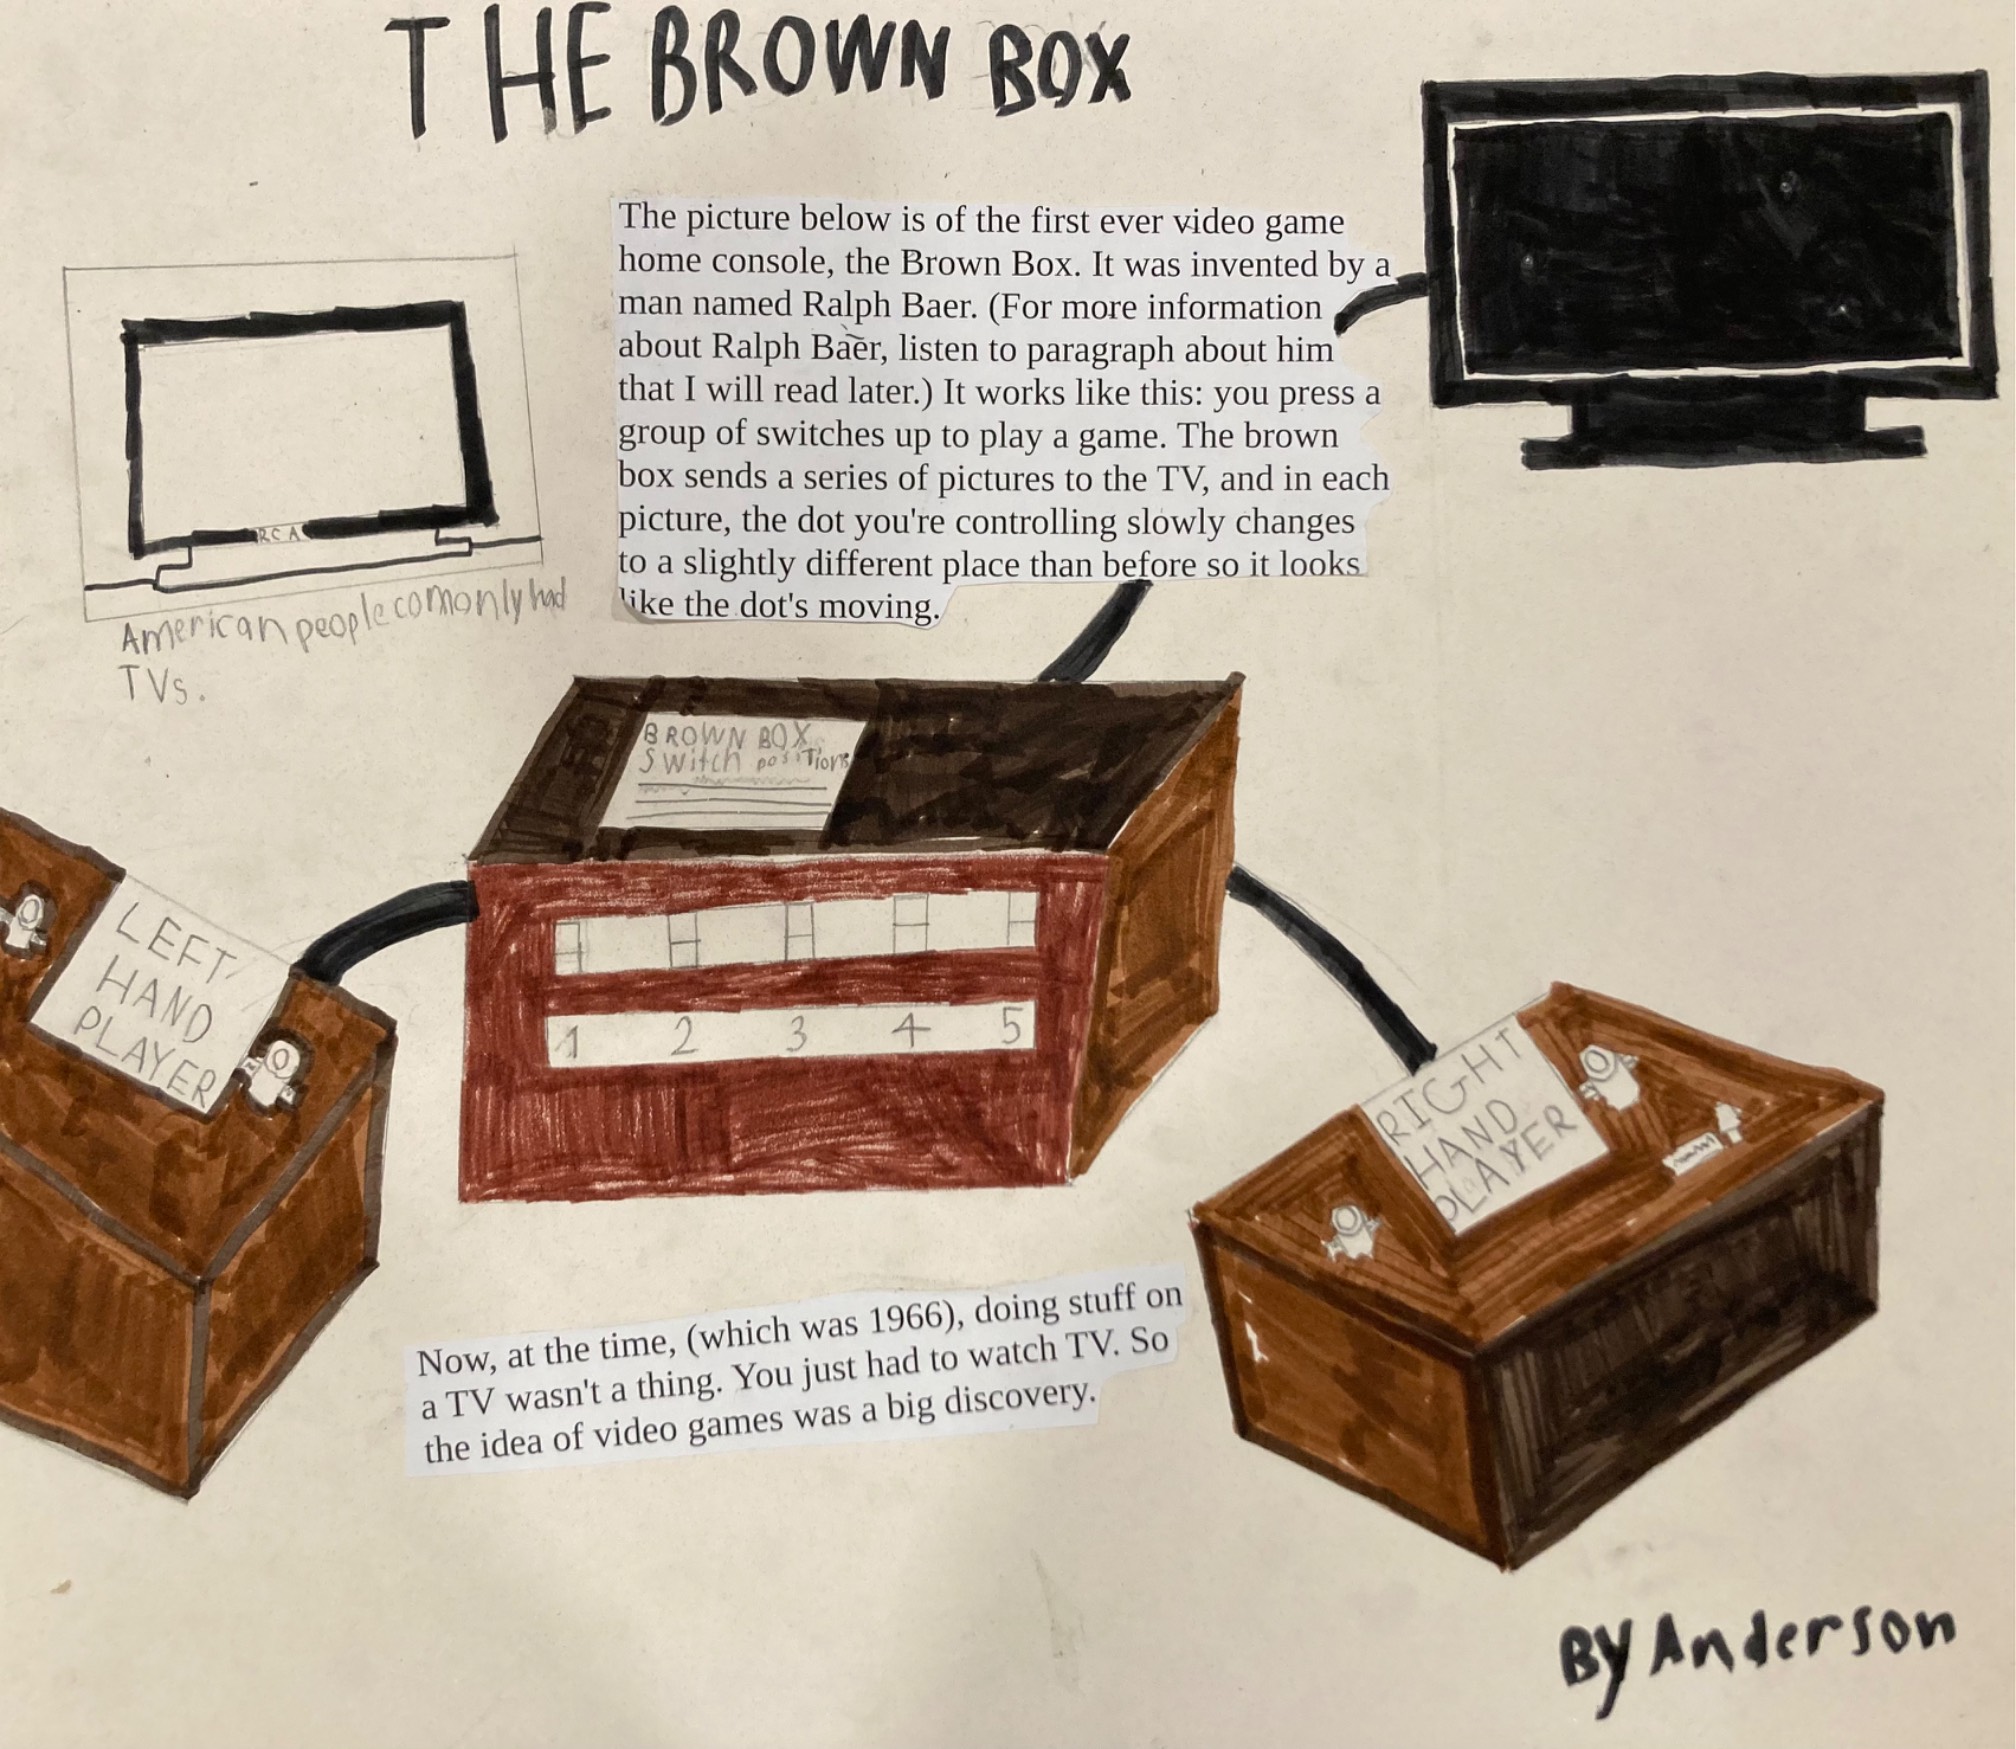 THE BROWN BOX
The picture below is of the first ever video game
home console, the Brown Box. It was invented by a
man named Ralph Baer. (For more information
about Ralph Baer, listen to paragraph about him
that I will read later.) It works like this: you press a
group of switches up to play a game. The brown
box sends a series of pictures to the TV, and in each
picture, the dot you're controlling slowly changes
to a slightly different place than before so it looks
like the dot's moving.
RCA
American people comonly had
TVs.
BROWN BOX
Switch positions
LEFT
HAND
PLAYER
1 2 3 4 5
RIGHT
HAND
PLAYER
Now, at the time, (which was 1966), doing stuff on
a TV wasn't a thing. You just had to watch TV. So
the idea of video games was a big discovery.
BY Anderson